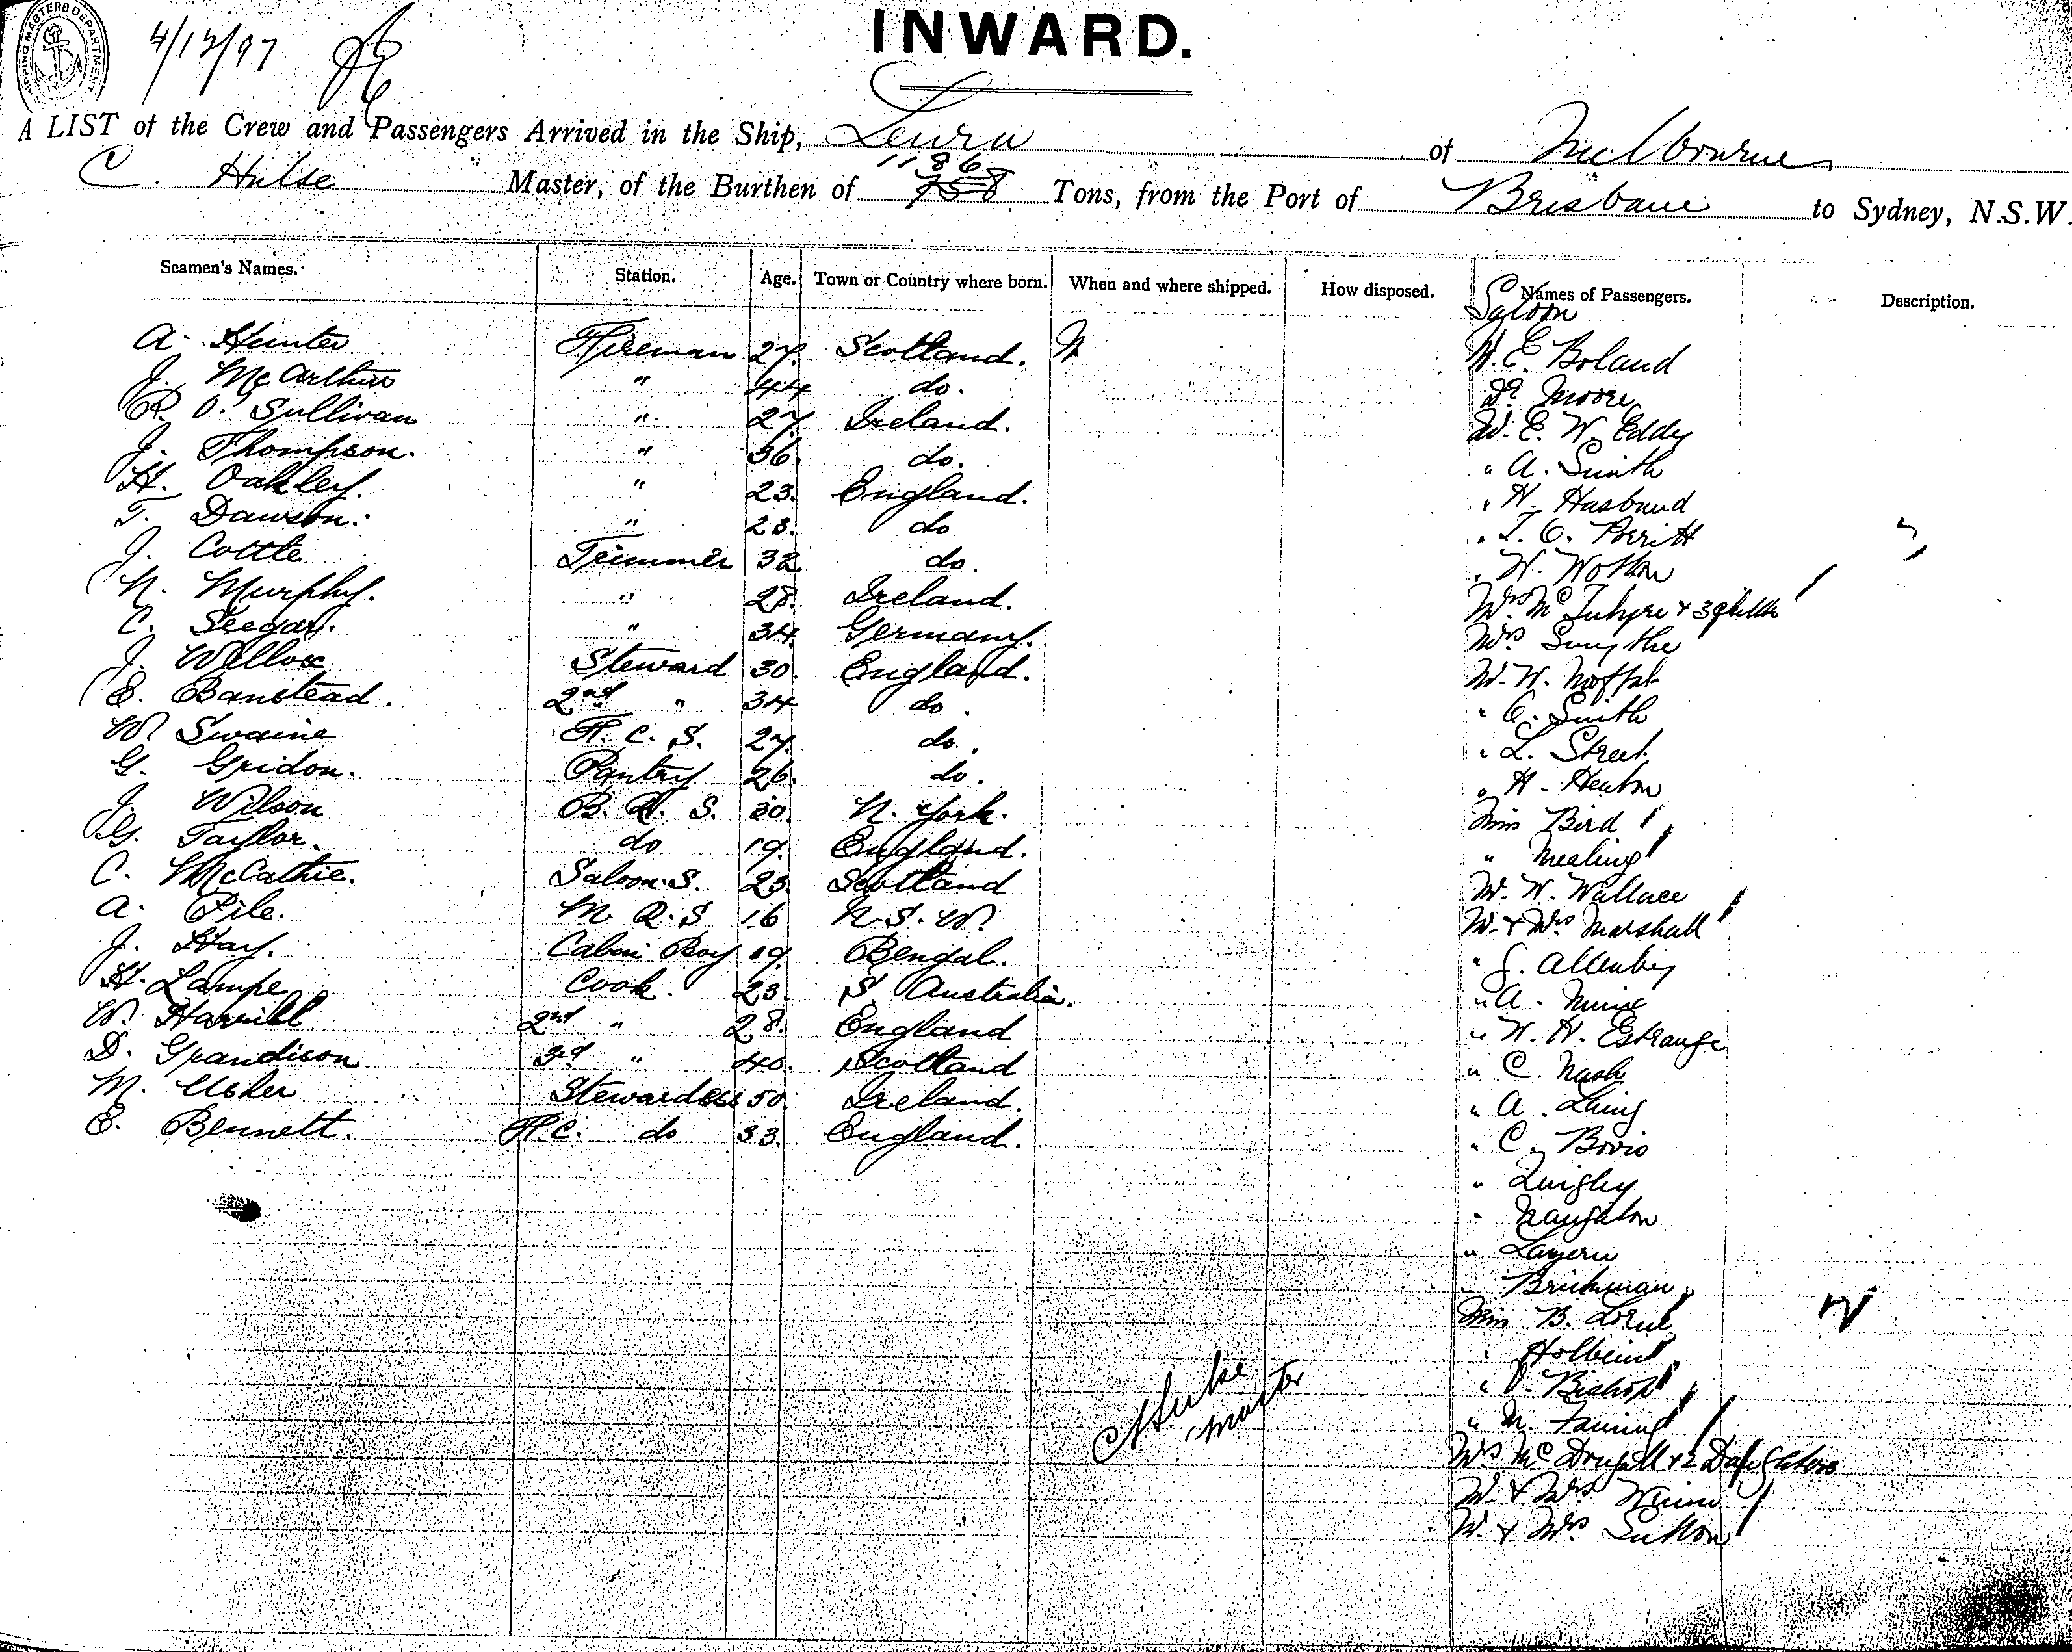 SHIPPING MASTERS DEPARTMENT
4/12/97
INWARD.
A LIST of the Crew and Passengers Arrived in the Ship, Leura of Melbourne
1186
C. Hulse Master, of the Burthen of 758 Tons, from the Port of Brisbane to Sydney, N.S.W.
Seamen's Names. Station. Age. Town or Country where born. When and where shipped. How disposed. Names of Passengers. Description.
Saloon
A. Hunter Fireman 27. Scotland.
J. McArthur " 44 do.
R. O. Sullivan " 27. Ireland.
J. Thompson. " 36. do.
H. Oakley. " 23. England.
T. Dawson. " 23. do
J. Cottle Trimmer 32 do.
N. Murphy. " 28. Ireland.
C. Seegar. " 34. Germany.
J. Wallace Steward 30. England.
E. Banstead. 2nd " 34 do.
W. Swaine F. C. S. 27. do.
G. Gridon. Pantry 26. do.
J. Wilson B. R. S. 30. N. York.
G. Taylor. do 19. England.
C. McCathie. Saloon. S. 23. Scotland
A. Pile. M. R. S 16 N. S. W.
J. Hay. Cabin Boy 19. Bengal.
H. Lampe Cook. 23. S. Australia.
W. Harrill 2nd " 28. England
D. Grandison 3rd " 40. Scotland
M. Usher Stewardess 50. Ireland.
E. Bennett. F.C. do 33. England.
W. E. Boland
Dr. Moore
W. E. W. Eddy
" A. Smith
" H. Husband
" T. C. Perritt
" W. Wotton
Mrs. Mc Intyre + 3
Mrs. Smythe
M. W. Moffat
" C. Smith
" L. Street
" H. Heaton
Miss Bird
" Mealing
M. W. Wallace
M. + Mrs Marshall
" J. Allenby
" A. Milne
" W. H. Estrange
" C. Nash
" A. Laing
" C. Bovis
" Quigley
" Naughton
"
" Brickman
Miss B.
" Holbein
" V. Bishop
" M. Fanning
Mrs Mc Dougall + 2 Daughters
M. + Mrs
M. + Mrs Sutton
C Hulse
Master